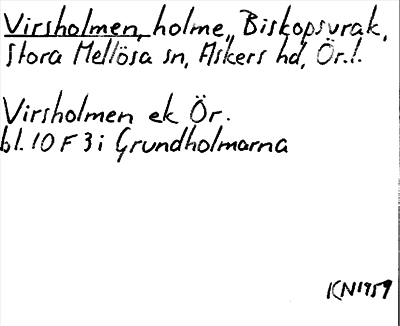 Virsholmen, holme, Biskopsvrak,
Stora Mellösa sn, Askers hd, Ör.l.
Virsholmen ek Ör.
bl. 10 F 3 i Grundholmarna
KN 1959